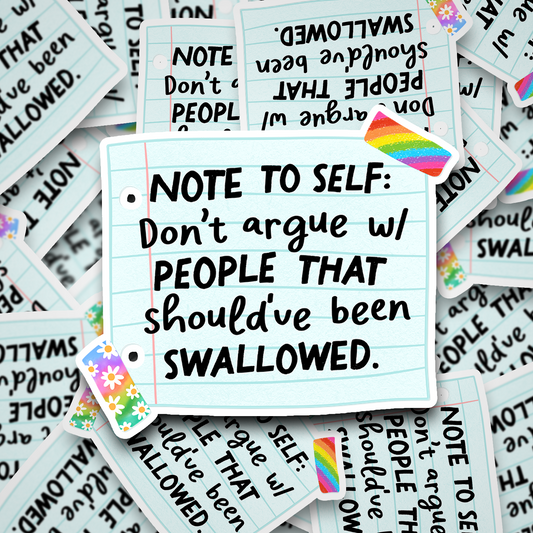 NOTE TO SELF:
Don't argue w/
PEOPLE THAT
should've been
SWALLOWED.